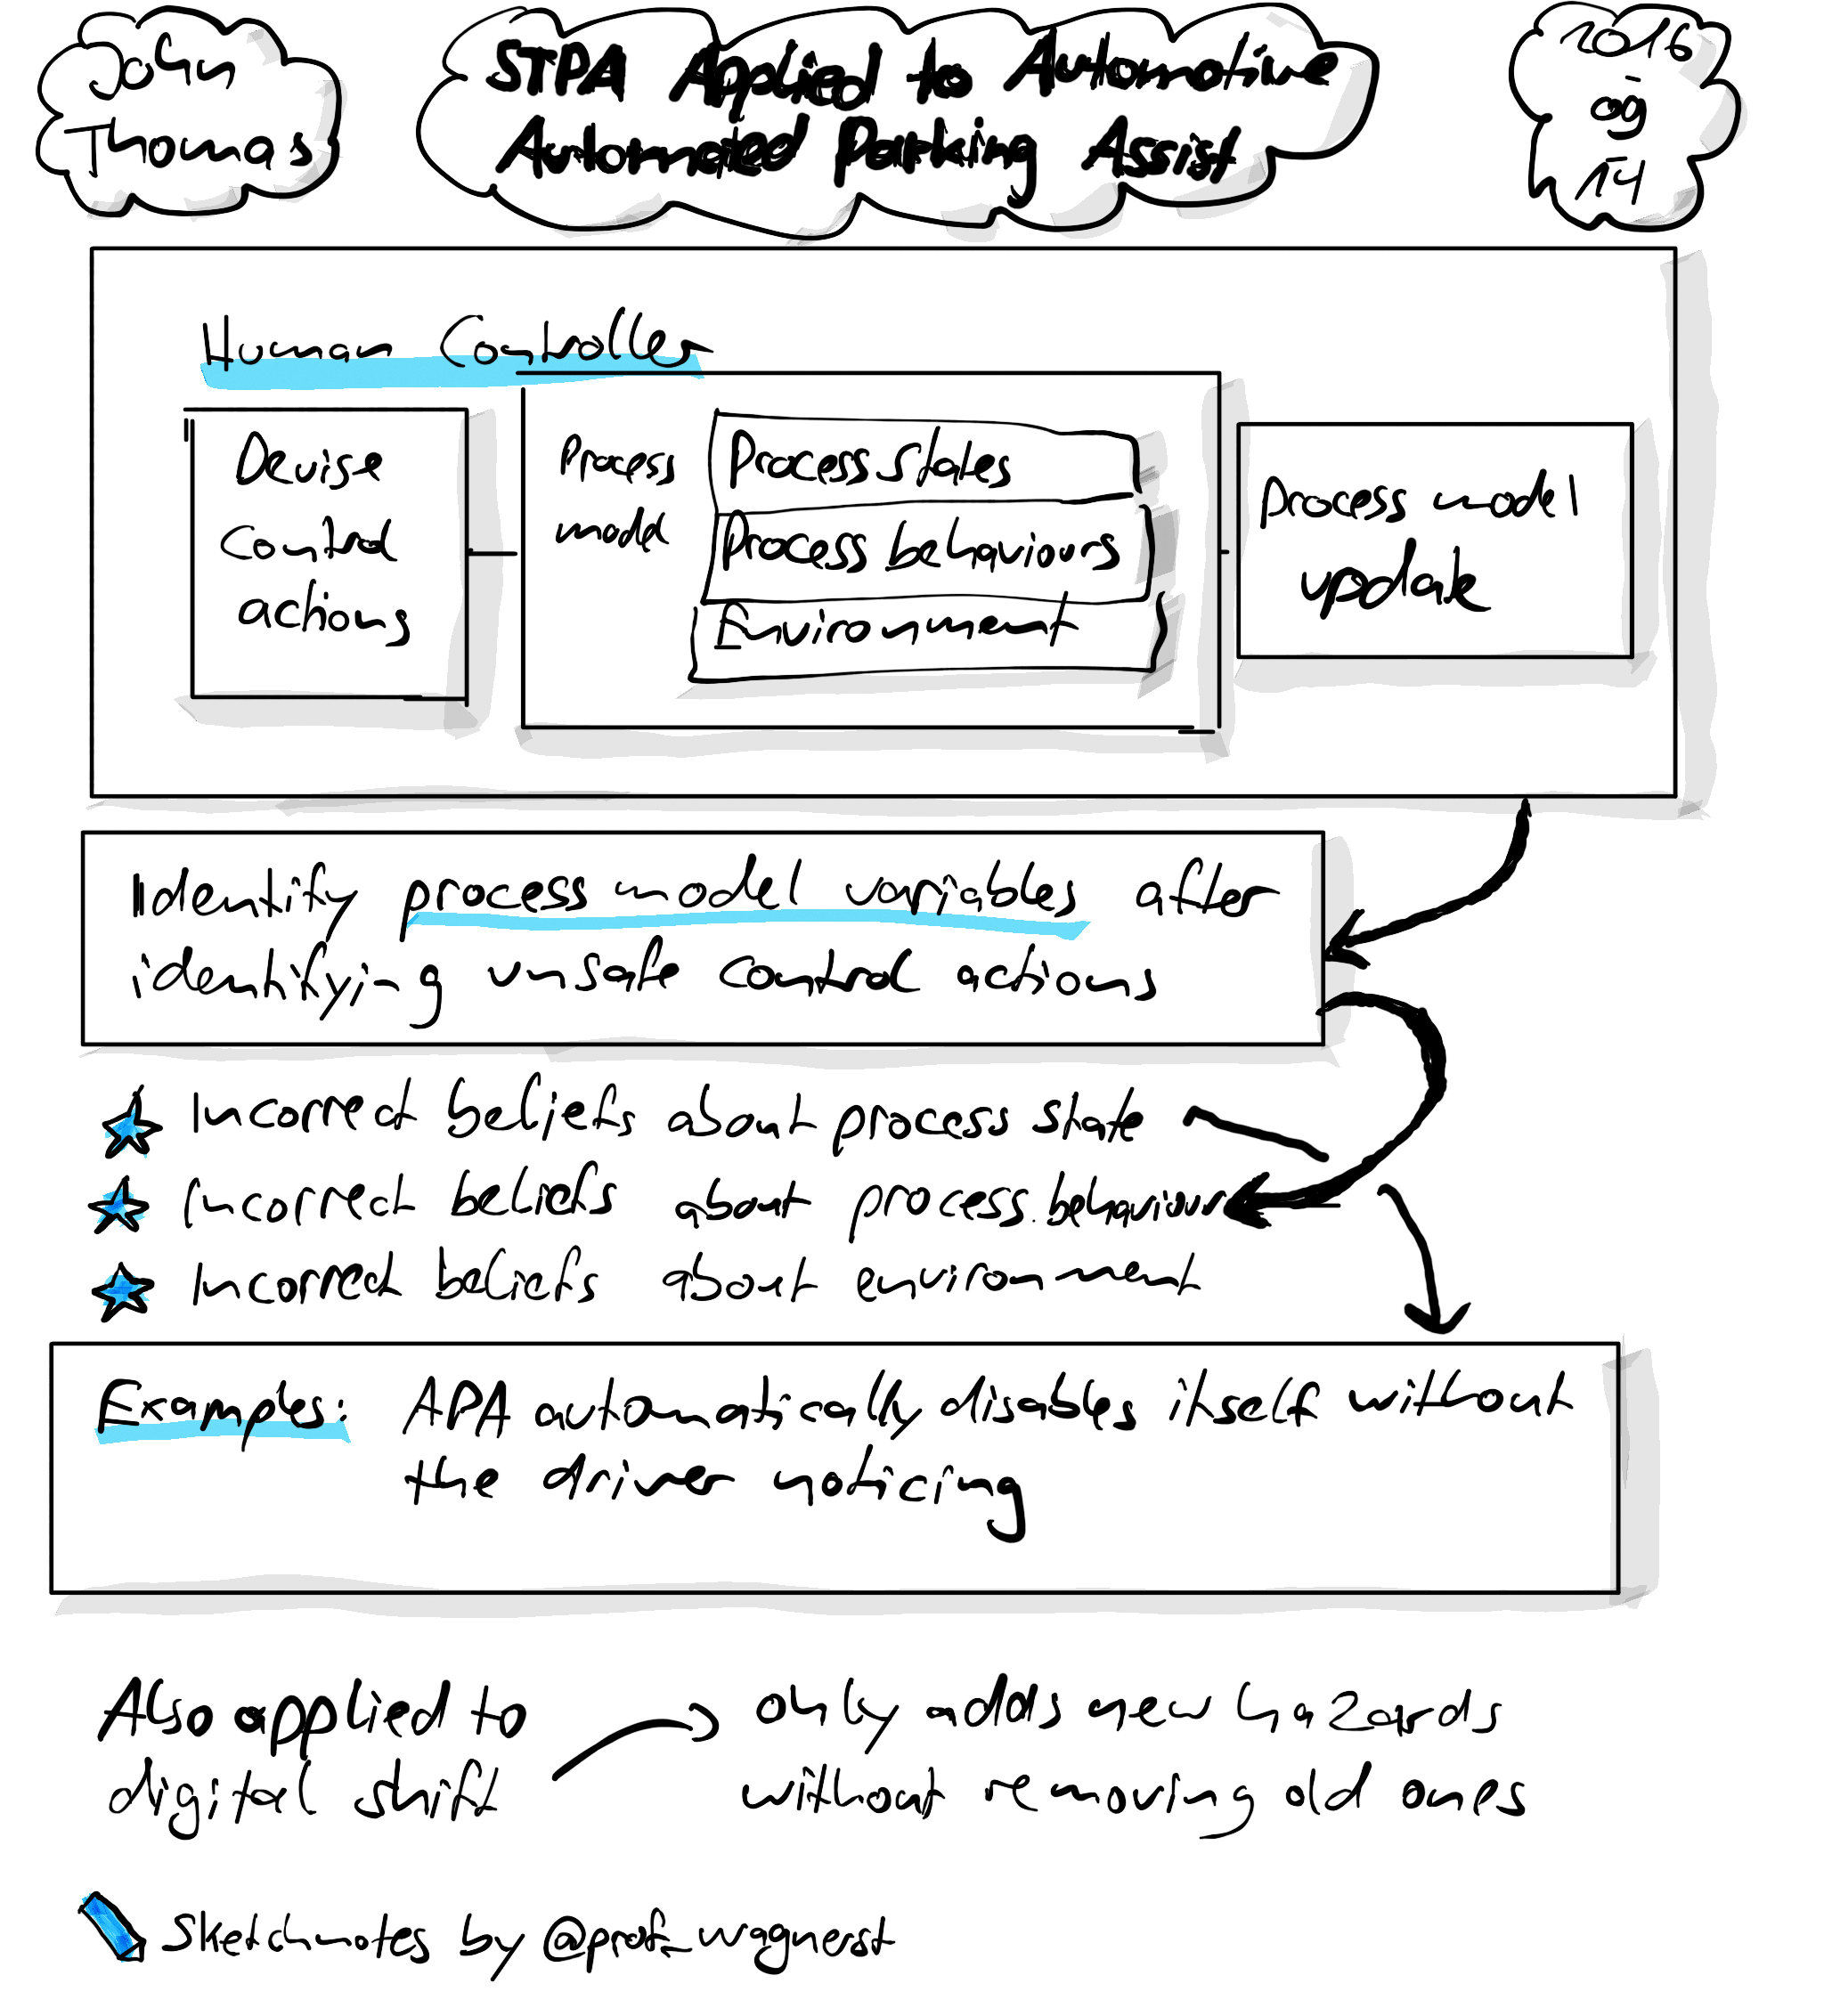 John
Thomas
STPA Applied to Automotive
Automated Parking Assist
2016
-
09
-
14
Human Controller
Devise
Control
actions
Process
model
Process states
Process behaviours
Environment
Process model
update
Identify process model variables after
identifying unsafe control actions
Incorrect beliefs about process state
Incorrect beliefs about process behaviour
Incorrect beliefs about environment
Examples: APA automatically disables itself without
the driver noticing
Also applied to
digital shift
only adds new hazards
without removing old ones
Sketchnotes by @prof_wagnerst